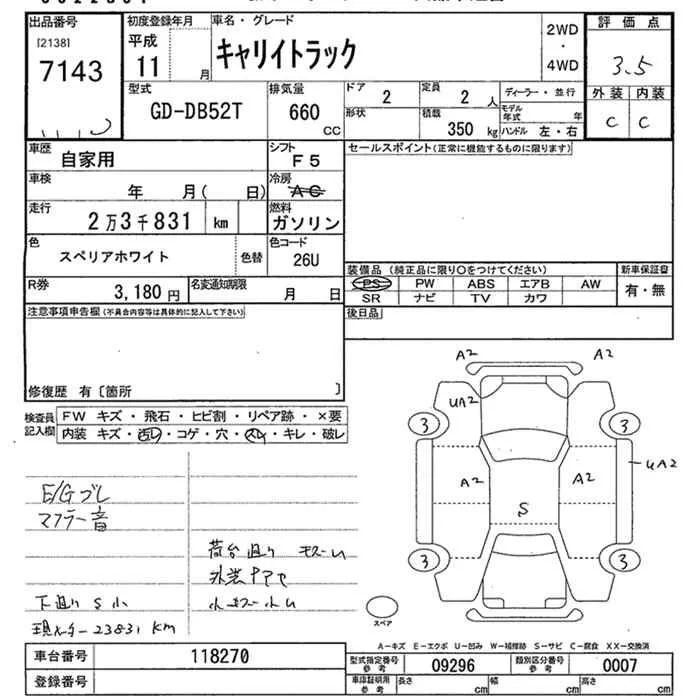 出品番号 初度登録年月 車名・グレード 2WD 評価点
[2138] 平成 キャリイトラック ・ 3.5
7143 11 月 4WD 外装 内装
型式 排気量 ドア 定員 ディーラー・並行 C C
GD-DB52T 660 CC 2 2 人 モデル年式 年
形状 積載 350 kg ハンドル 左・右
車歴 自家用 シフト F5 セールスポイント(正常に機能するものに限ります)
車検 年 月( 日) 冷房 AC
走行 2万3千831 km 燃料 ガソリン
色 スペリアホワイト 色替 色コード 26U
装備品 (純正品に限り○をつけてください) 新車保証書
R券 3,180円 名変通知期限 月 日 PS PW ABS エアB AW 有・無
SR ナビ TV カワ
注意事項申告欄(不具合内容等は具体的に記入して下さい) 後日品
修復歴 有〔箇所 〕
検査員 FW キズ・飛石・ヒビ割・リペア跡・×要
記入欄 内装 キズ・汚レ・コゲ・穴・スレ・キレ・破レ
A2 A2
UA2
3 3
A2 A2 UA2
S
3 3
E/Gブレ
マフラー音
荷台廻り
下廻りS小
現メーター23831km
スペア
A-キズ E-エクボ U-凹み W-補修跡 S-サビ C-腐食 XX-交換済
車台番号 118270 型式指定番号 参考 09296 類別区分番号 参考 0007
登録番号 車庫証明用 参考 長さ cm 幅 cm 高さ cm